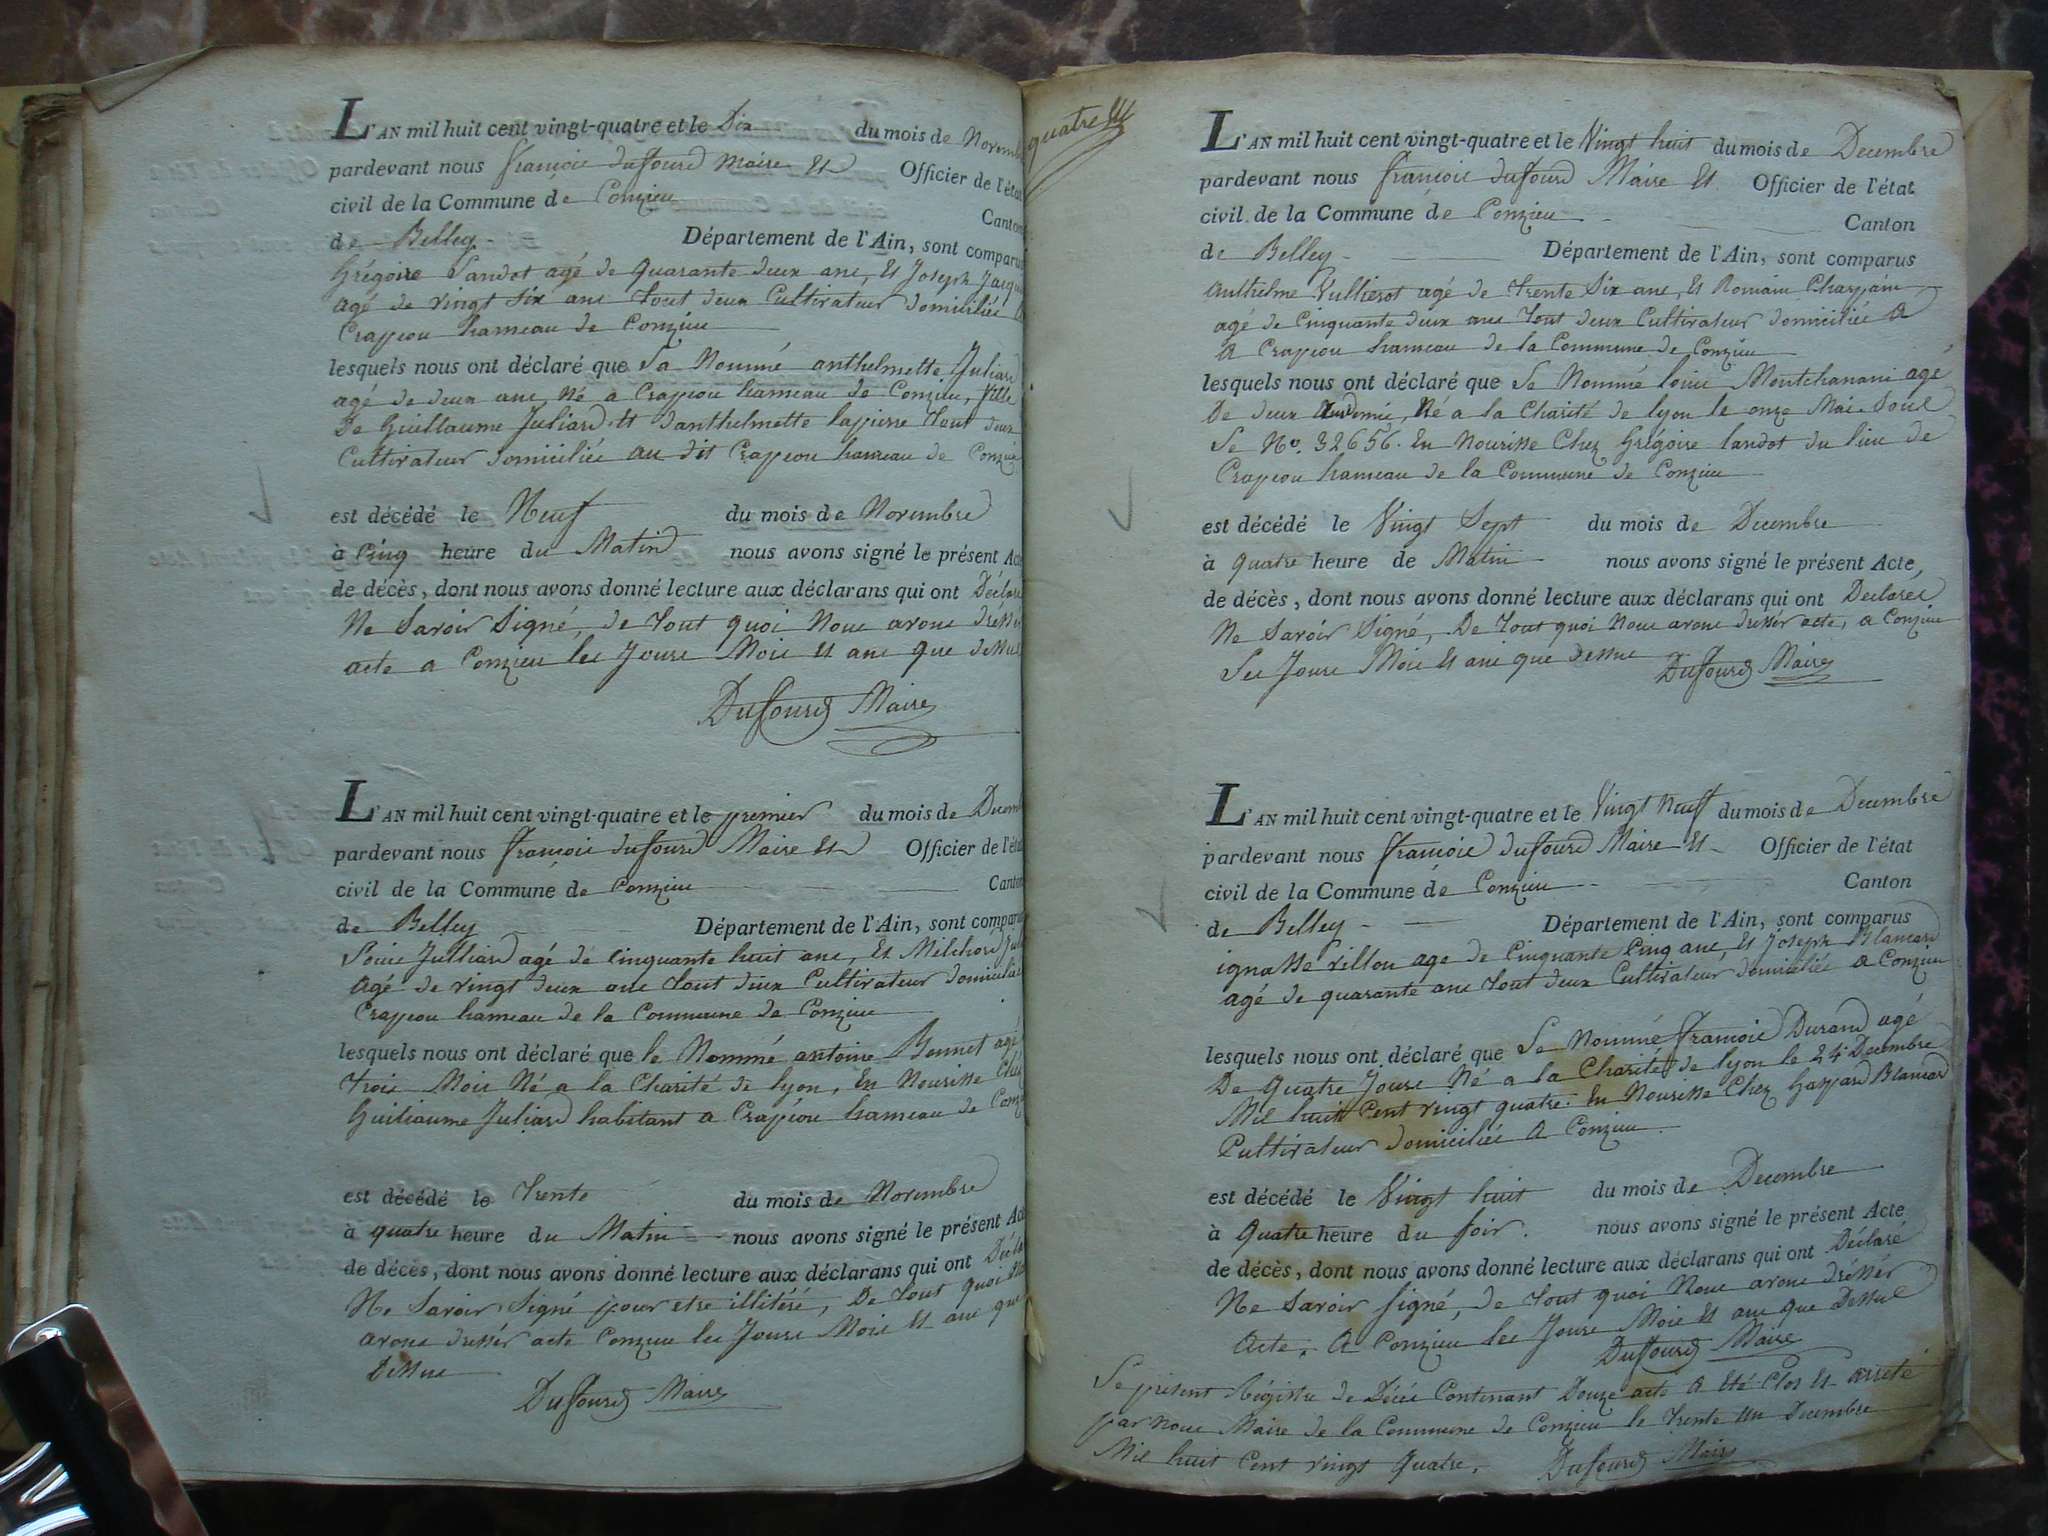 L'AN mil huit cent vingt-quatre et le Dix du mois de Novembre
pardevant nous françois duffourd maire Et Officier de l'état
civil de la Commune de Conzieu Canton
de Belley Département de l'Ain, sont comparus
Grégoire Landot agé de quarante deux ans, Et Joseph
agé de vingt six ans tout deux Cultivateur domiciliés
Crapéou hameau de Conzieu
lesquels nous ont déclaré que La Nommé anthelmette Juliard
agé de deux ans, Né a Crapéou hameau de Conzieu, fille
De Guillaume Juliard Et danthelmette lapierre tout deux
Cultivateur domiciliés au dit Crapéou hameau de Conzieu
est décédé le Neuf du mois de Novembre
à Cinq heure du Matin nous avons signé le présent Acte
de décès, dont nous avons donné lecture aux déclarans qui ont Déclaré
Ne Savoir Signé, de tout quoi Nous avons dréssér
acte a Conzieu les Jours Mois Et ans que dessus
Duffourd Maire
L'AN mil huit cent vingt-quatre et le premier du mois de Decembre
pardevant nous françois duffourd Maire Et Officier de l'état
civil de la Commune de Conzieu Canton
de Belley Département de l'Ain, sont comparus
Louis Julliard agé de cinquante huit ans, Et Melchord
Agé de vingt deux ans tout deux Cultivateur domiciliés
Crapéou hameau de la Commune de Conzieu
lesquels nous ont déclaré que le Nommé antoine Bonnet agé
trois Mois Né a la Charité de lyon, En Nourisse Chez
Guillaume Juliard habitant a Crapéou hameau de Conzieu
est décédé le trente du mois de Novembre
à quatre heure du Matin nous avons signé le présent Acte
de décès, dont nous avons donné lecture aux déclarans qui ont Déclaré
Ne Savoir Signé pour etre illitéré, De tout quoi
avons dressér acte Conzieu les Jours Mois Et ans que
Dessus
Duffourd Maire
quatre
L'AN mil huit cent vingt-quatre et le Vingt huit du mois de Decembre
pardevant nous françois duffourd Maire Et Officier de l'état
civil de la Commune de Conzieu Canton
de Belley Département de l'Ain, sont comparus
anthelme Vullierot agé de trente Six ans, Et Romain Charpain
agé de Cinquante deux ans tout deux Cultivateur domiciliés a
a Crapéou hameau de la Commune de Conzieu
lesquels nous ont déclaré que Le Nommé louis agé
De deux, Né a la Charité de lyon le onze Mai Sous
Le No. 32656. En Nourisse Chez Grégoire landot du lieu de
Crapéou hameau de la Commune de Conzieu
est décédé le Vingt Sept du mois de Decembre
à quatre heure de Matin nous avons signé le présent Acte,
de décès, dont nous avons donné lecture aux déclarans qui ont Déclarés
Ne Savoir Signé, De tout quoi Nous avons dressér acte, a Conzieu
Les Jours Mois Et ans que dessus Duffourd Maire
L'AN mil huit cent vingt-quatre et le Vingt Neuf du mois de Decembre
pardevant nous françois duffourd Maire Et Officier de l'état
civil de la Commune de Conzieu Canton
de Belley Département de l'Ain, sont comparus
ignasse rillou age de Cinquante Cinq ans, Et Joseph Blancard
agé de quarante ans tout deux Cultivateur domiciliés a Conzieu
lesquels nous ont déclaré que Le Nommé françois Durand agé
De Quatre Jours Né a la Charité de lyon le 24 Decembre
Mil huit Cent vingt quatre. En Nourisse Chez Gaspard Blancard
Cultivateur domiciliés A Conzieu.
est décédé le Vingt huit du mois de Decembre
à Quatre heure du soir. nous avons signé le présent Acte
de décès, dont nous avons donné lecture aux déclarans qui ont Déclaré
Ne Savoir signé, de tout quoi Nous avons dréssér
Acte, A Conzieu les Jours Mois Et ans que Dessus
Duffourd Maire
Le présent Régistre de Décés Contenant Douze acte A Eté Clos Et arreté
par nous Maire de la Commune de Conzieu le trente un Decembre
Mil huit Cent vingt Quatre. Duffourd Maire